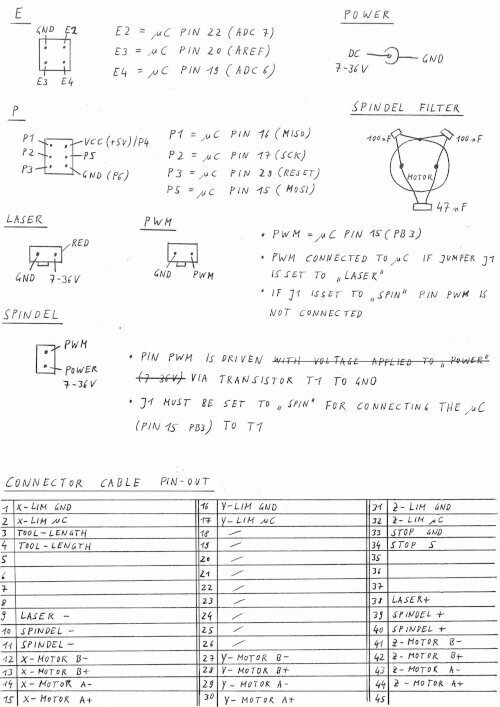 E
GND E2
E3 E4
E2 = µC PIN 22 (ADC 7)
E3 = µC PIN 20 (AREF)
E4 = µC PIN 19 (ADC 6)
POWER
DC
7-36V
GND
P
P1
P2
P3
VCC (+5V)/P4
P5
GND (P6)
P1 = µC PIN 16 (MISO)
P2 = µC PIN 17 (SCK)
P3 = µC PIN 29 (RESET)
P5 = µC PIN 15 (MOSI)
SPINDEL FILTER
100nF 100nF
MOTOR
47nF
LASER
RED
GND 7-36V
PWM
GND PWM
• PWM = µC PIN 15 (PB3)
• PWM CONNECTED TO µC IF JUMPER J1
IS SET TO „LASER"
• IF J1 IS SET TO „SPIN" PIN PWM IS
NOT CONNECTED
SPINDEL
PWM
POWER
7-36V
• PIN PWM IS DRIVEN WITH VOLTAGE APPLIED TO „POWER"
(7-36V) VIA TRANSISTOR T1 TO GND
• J1 MUST BE SET TO „SPIN" FOR CONNECTING THE µC
(PIN 15 PB3) TO T1
CONNECTOR CABLE PIN-OUT
1 X-LIM GND 16 Y-LIM GND 31 Z-LIM GND
2 X-LIM µC 17 Y-LIM µC 32 Z-LIM µC
3 TOOL-LENGTH 18 / 33 STOP GND
4 TOOL-LENGTH 19 / 34 STOP S
5 20 / 35
6 21 / 36
7 22 / 37
8 23 / 38 LASER+
9 LASER - 24 / 39 SPINDEL +
10 SPINDEL - 25 / 40 SPINDEL +
11 SPINDEL - 26 / 41 Z-MOTOR B-
12 X-MOTOR B- 27 Y-MOTOR B- 42 Z-MOTOR B+
13 X-MOTOR B+ 28 Y-MOTOR B+ 43 Z-MOTOR A-
14 X-MOTOR A- 29 Y-MOTOR A- 44 Z-MOTOR A+
15 X-MOTOR A+ 30 Y-MOTOR A+ 45